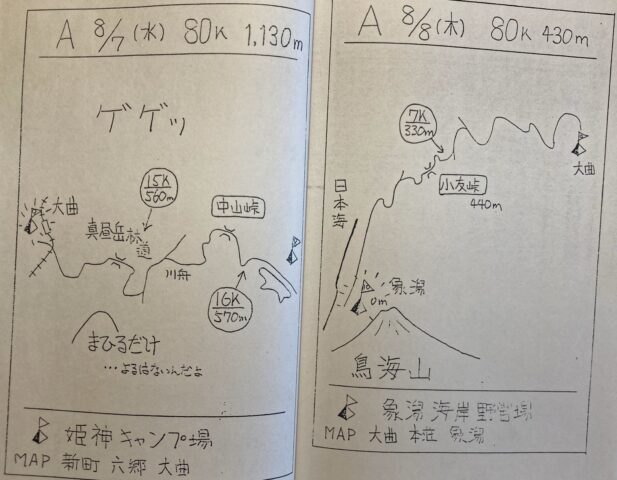 A 8/7(水) 80K 1,130m
ゲゲッ
大曲
15K
560m
真昼岳林道
中山峠
川舟
16K
570m
まひるだけ
…よるはないんだよ
姫神キャンプ場
MAP 新町 六郷 大曲
A 8/8(木) 80K 430m
7K
330m
大曲
小友峠
440m
日本海
象潟
0m
鳥海山
象潟海岸野営場
MAP 大曲 本荘 象潟